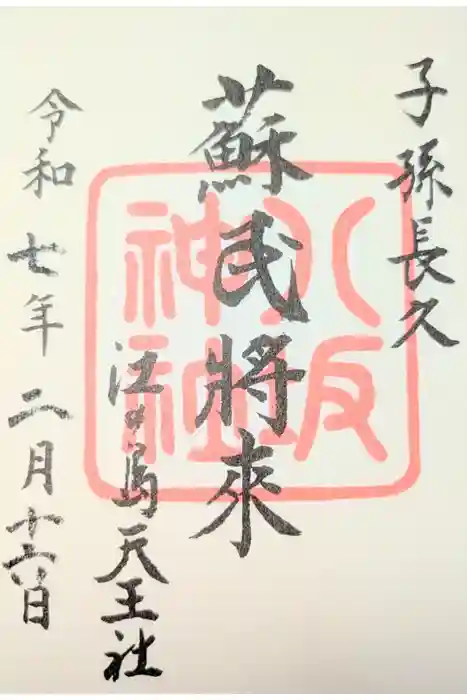 子孫長久
蘇民將來
汪ヶ島天王社
令和七年二月十六日
八坂神社